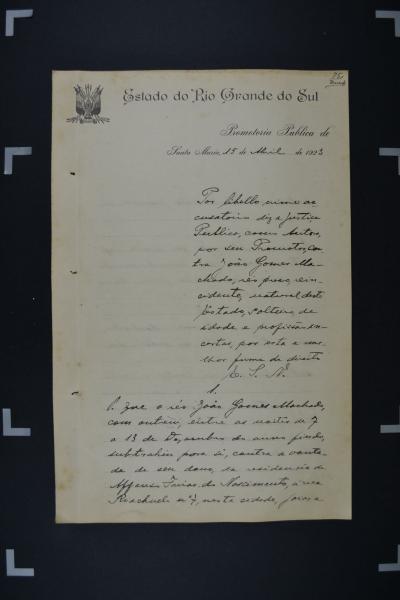 Estado do Rio Grande do Sul
Promotoria Publica de
Santa Maria, 15 de Abril de 1923
Por libello crime ac-
cusatorio diz a Justiça
Publica, como Autora,
por seu Promotor, con-
tra João Gomes Ma-
chado, réo preso, rein-
cidente, natural deste
Estado, solteiro, de
idade e profissão in-
certas, por esta e me-
lhor forma de direito
E. S. N.
1.
P. que o réo João Gomes Machado,
com outrem, entre as noites de 7
a 13 de Dezembro do anno findo,
subtrahiu para si, contra a vonta-
de de seu dono, da residencia de
Affonso do Nascimento, á rua
Riachuelo nº 7, nesta cidade,